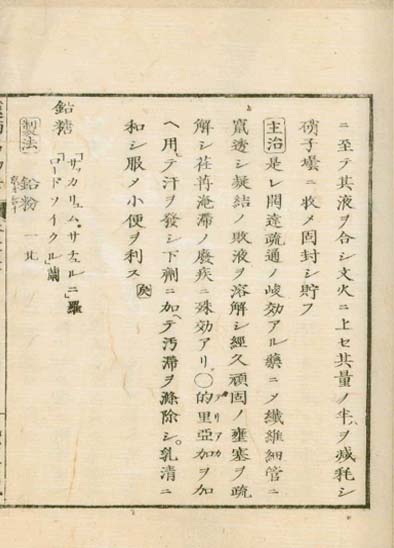 ニ至テ其液ヲ合シ文火ニ上セ其量ノ半ヲ減耗シ
硝子壜ニ收メ固封シ貯フ
主治 是レ開達疏通ノ峻効アル藥ニメ纖維細管ニ
竄透シ凝結ノ敗液ヲ溶解シ經久頑固ノ壅塞ヲ疏
解シ荏苒淹滞ノ廢疾ニ殊効アリ○的里亞加ヲ加
テリアカ
ヘ用テ汗ヲ發シ下劑ニ加ヘテ汚滞ヲ滌除シ乳清ニ
和シ服メ小便ヲ利ス
鉛糖 「サッカリュム、サチュルニ」羅
「ロードソイクル」蘭
製法 鉛粉 一